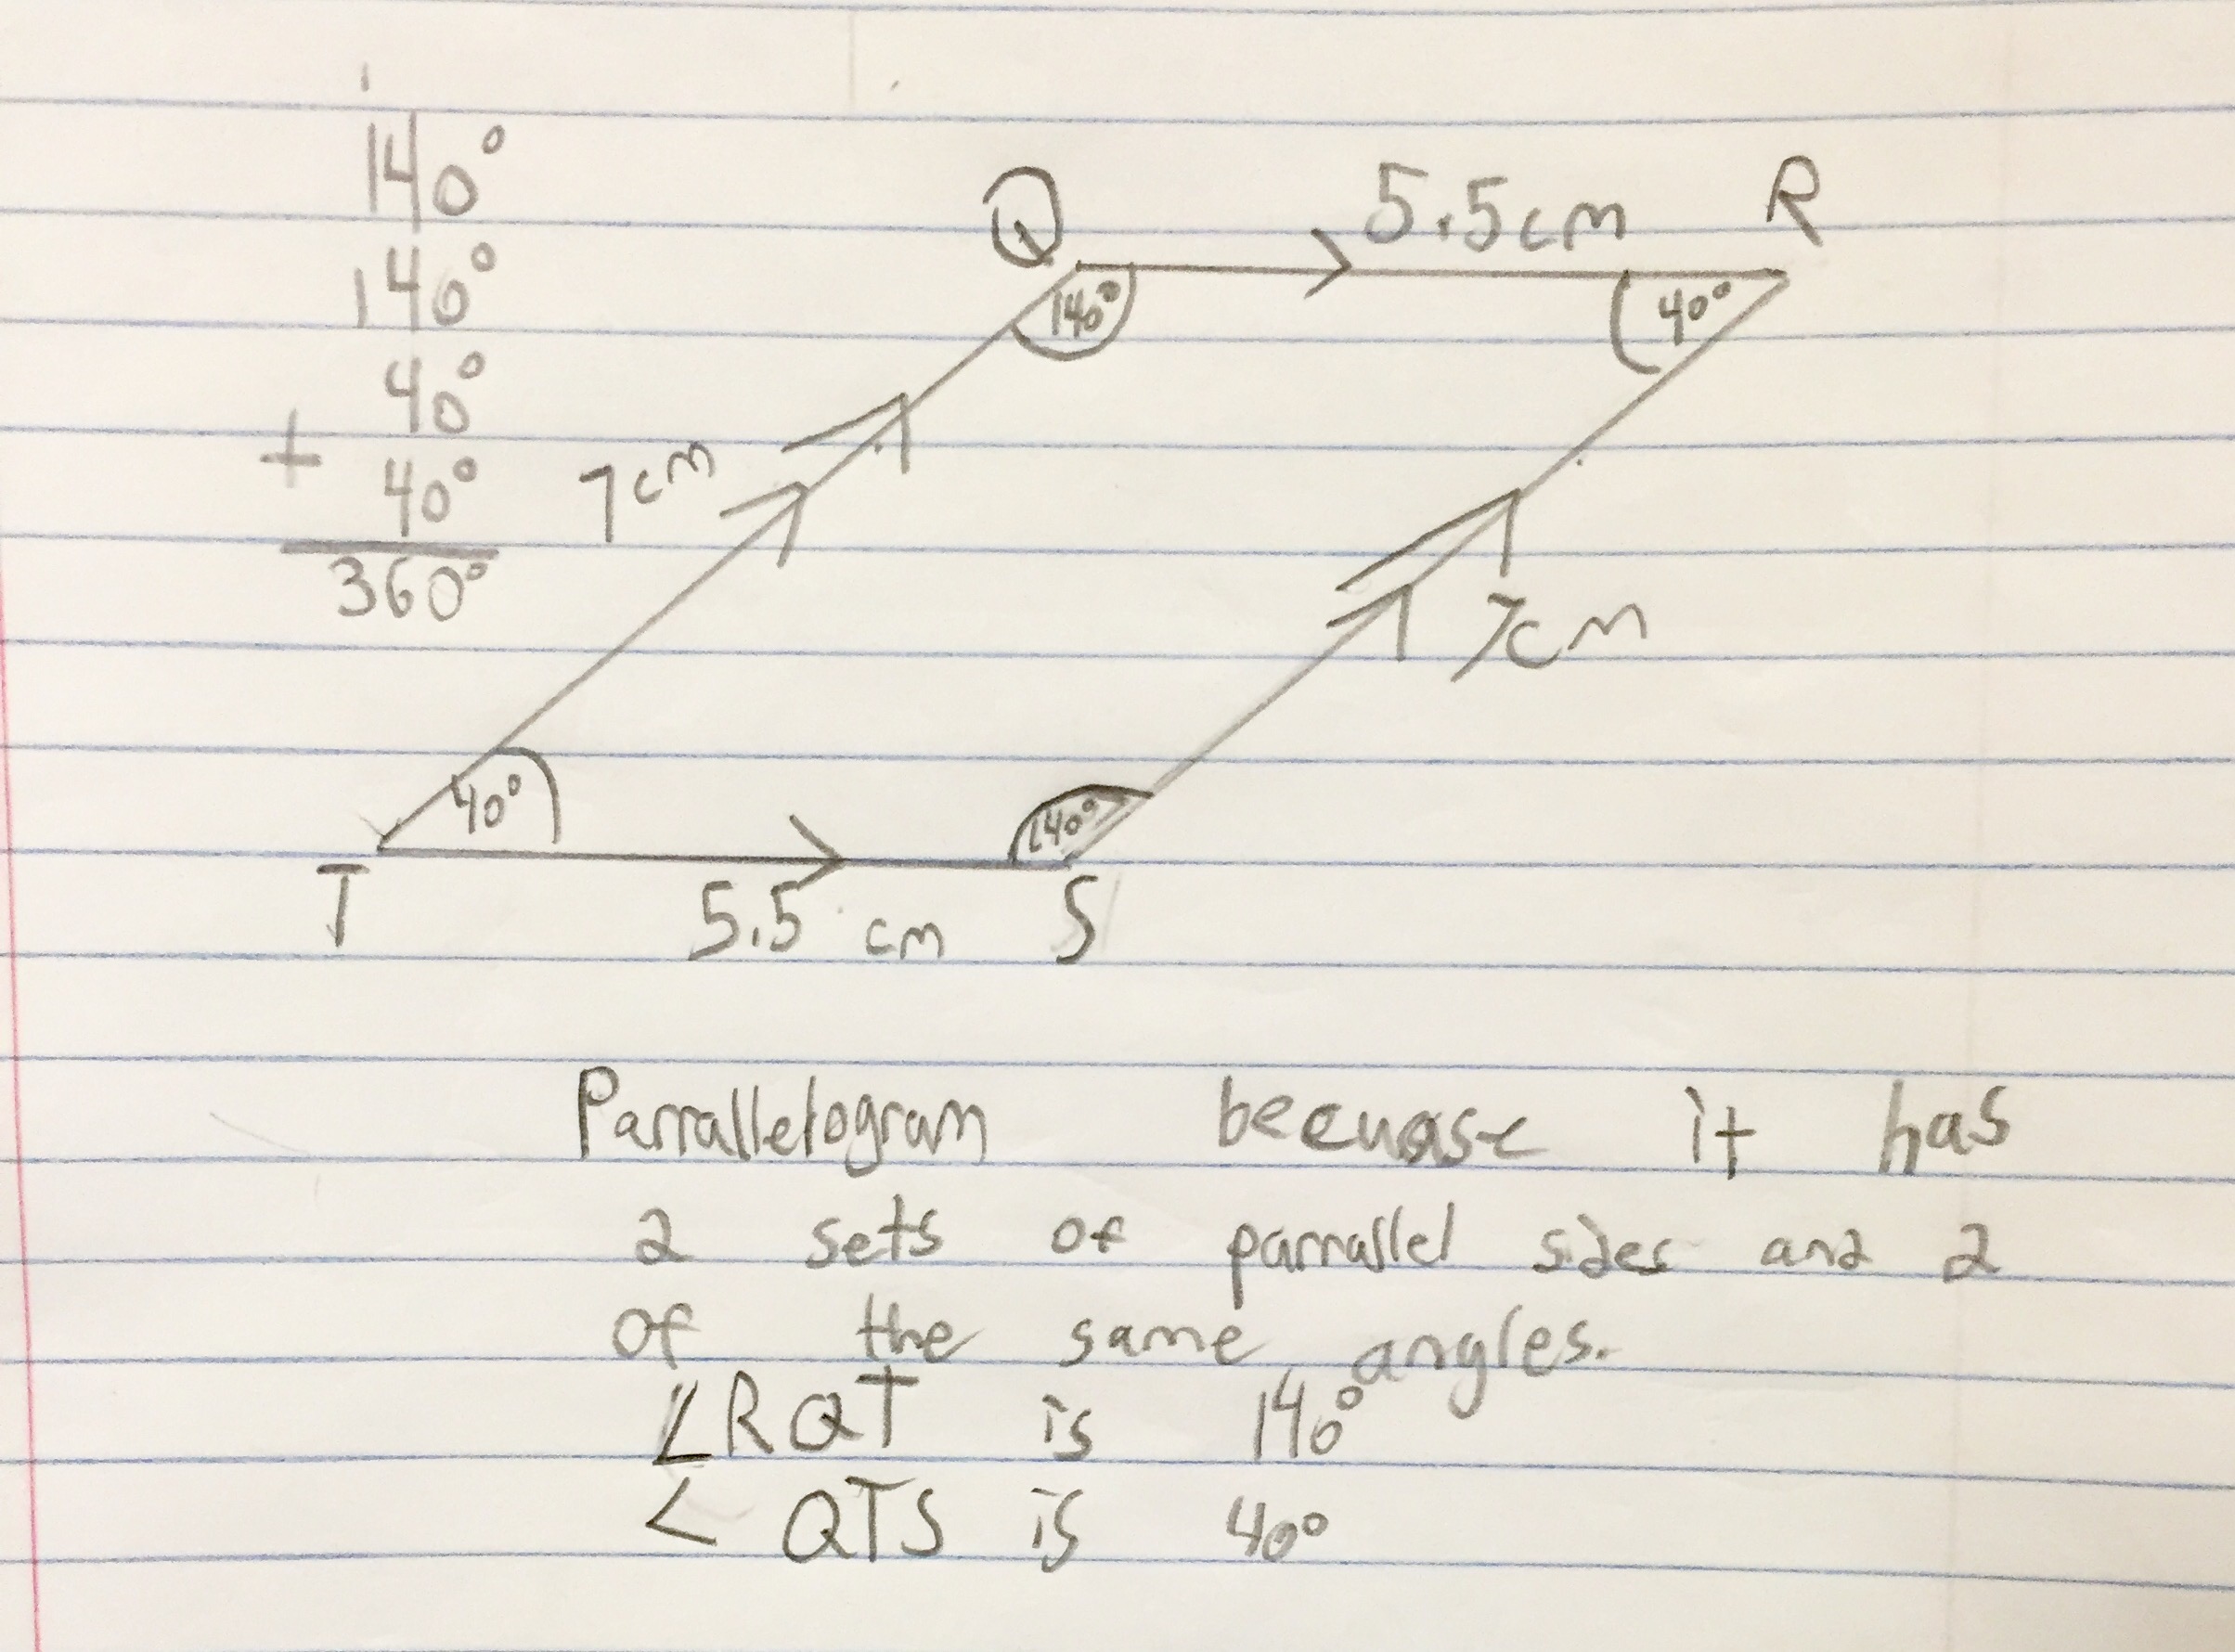 140°
140°
40°
+ 40°
360°
Q
5.5cm
R
140°
40°
7cm
7cm
40°
140°
T
5.5 cm
S
Parrallelogram because it has
2 sets of parrallel sides and 2
of the same angles.
∠RQT is 140°
< QTS is 40°